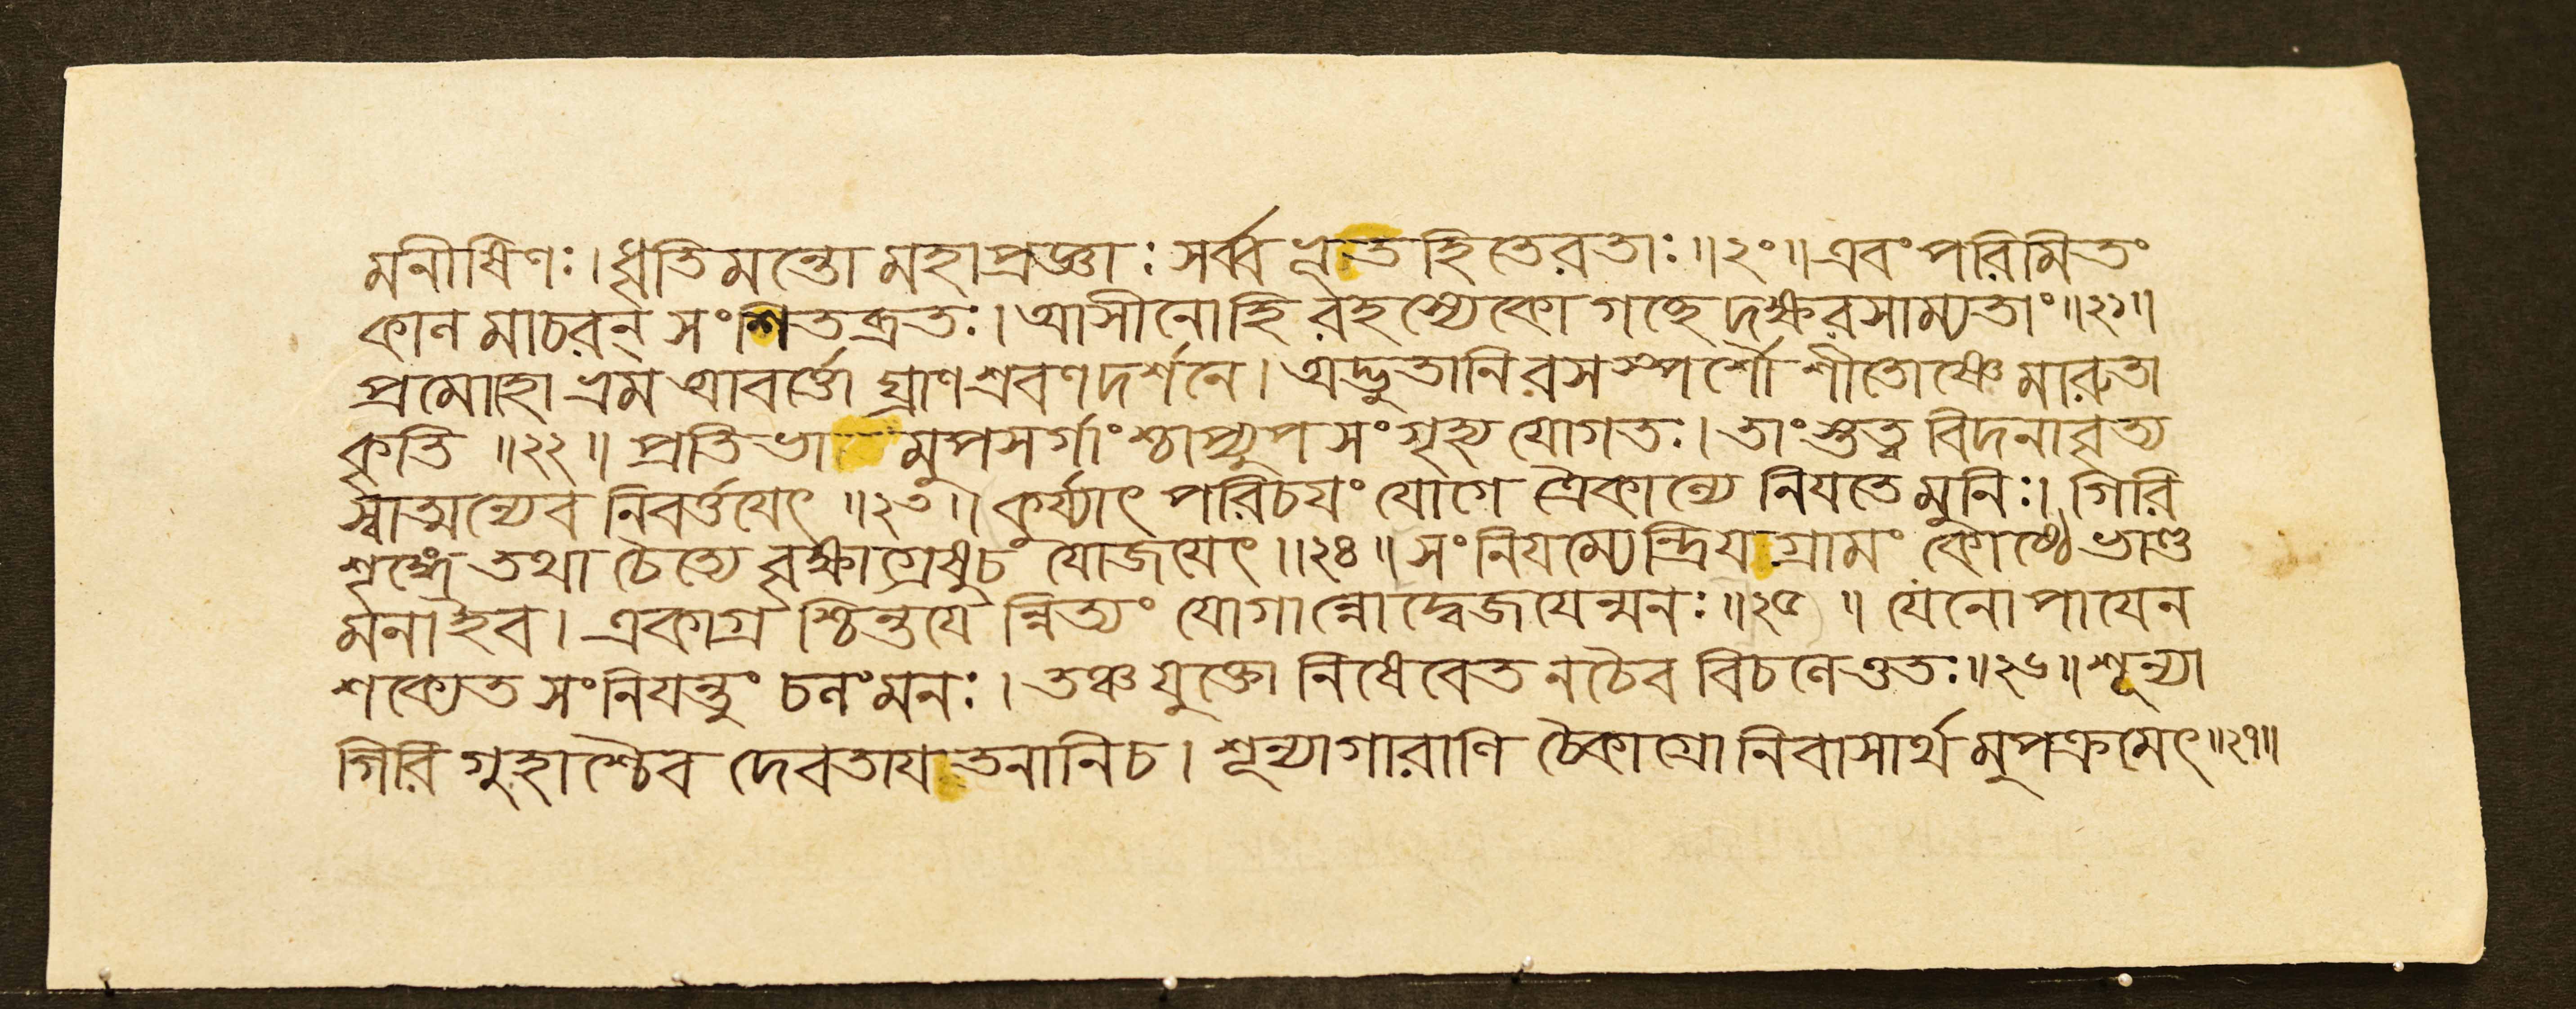 মনীষিণঃ। ধৃতিমন্তো মহাপ্রজ্ঞাঃ সর্ব্ব ভূত হিতেরতাঃ॥২০॥ এবং পরিমিতং
কাল মাচরন্ সংশিতব্রতঃ। আসীনোহি রহস্যেকো গচ্ছেদক্ষরসাম্যতাং॥২১॥
প্রমোহা ভ্রম আবর্ত্তো ঘ্রাণশ্রবণদর্শনে। অদ্ভুতানি রসস্পর্শৌ শীতোষ্ণে মারুতা
কৃতি ॥২২॥ প্রতিভা মুপসর্গাংশ্চাপ্যুপ সংগৃহ্য যোগতঃ। তাংস্তত্ব বিদনাবৃত্য
স্বাত্মন্যেব নিবর্ত্তযেৎ ॥২৩॥ কুর্য্যাৎ পরিচযং যোগে ত্রৈকাল্যে নিযতে মুনিঃ। গিরি
শৃঙ্গে তথা চৈত্যে বৃক্ষাগ্রেষুচ যোজযেৎ ॥২৪॥ সংনিযম্যেন্দ্রিয গ্রামং কোষ্ঠে ভাণ্ড
র্মনাইব। একাগ্র শ্চিন্তযে ন্নিত্যং যোগান্নোদ্বেজযেন্মনঃ॥২৫ ॥ যেনোপাযেন
শক্যেত সংনিযন্তুং চলংমনঃ। তঞ্চ যুক্তো নিষেবেত নচৈব বিচলেওতঃ॥২৬॥ শূন্যা
গিরি গুহাশ্চৈব দেবতায তনানিচ। শূন্যাগারাণি চৈকাগ্রো নিবাসার্থ মুপক্রমেৎ॥২৭॥